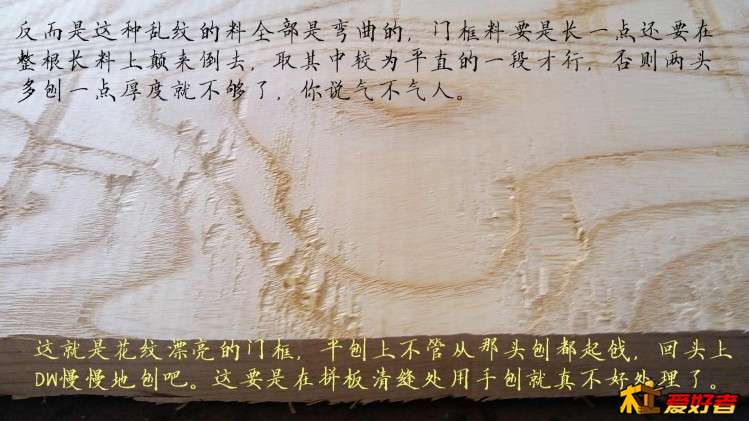 反而是这种乱纹的料全部是弯曲的，门框料要是长一点还要在
整根长料上颠来倒去，取其中较为平直的一段才行，否则两头
多刨一点厚度就不够了，你说气不气人。
这就是花纹漂亮的门框，平刨上不管从那头刨都起戗，回头上
DW慢慢地刨吧。这要是在拼板清缝处用手刨就真不好处理了。
木工爱好者